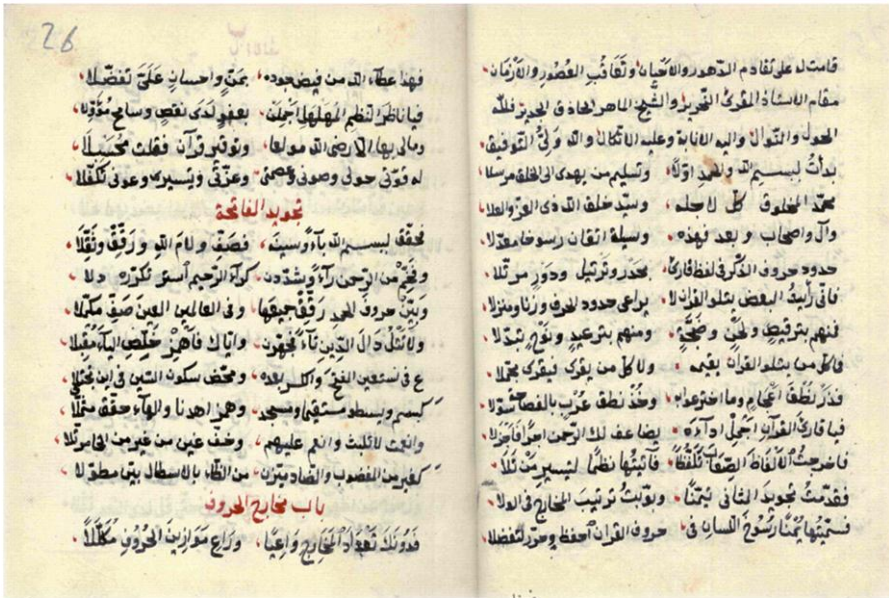 قامت له على تقادم الدهور والاحيان وتعاقب العصور والازمان
مقام الاستاذ المقرئ النحرير والشيخ الماهر الحاذق الجدير فلله
الحول والنوال واليه الانابة وعليه الاتكال والله ولي التوفيق
بدأت ببسم الله والحمد اولا وتسليم من يهدى الى الخلق مرسلا
محمد المخلوق كل لاجله وسيد خلق الله ذى العز والعلا
وآل واصحاب وبعد فهذه وسيلة اتقان رسوخا معدلا
حدود حروف الذكر فى لفظ قارئ بحدر وترتيل ودور مرتلا
فانى رأيت البعض يتلو القران لا يراعى حدود الحرف وزنا ومنزلا
فمنهم بترقيص ولحن وضجة ومنهم بترعيد ونوح تبدلا
فما كل من يتلو القران يقيمه ولا كل من يقرى فيقرى مجملا
فذر نطق اعجام وما اخترعوا به وخذ نطق عرب بالفصاحة سولا
فيا قارئ القرآن اجمل اداءه يضاعف لك الرحمن اجرا فاجزلا
فاخرجت الالفاظ الصفات تلفظا نظما لتيسير من تلا
فقدمت تجويد المثانى تيمنا وبوبت ترتيب المخارج فى الولا
فسميتها يمنا رسوخ اللسان فى حروف القران احفظ وحرر لتفضلا
26
فهذا عطاء الله من فيض جوده بمن واحسان على تفضلا
فيا ناظر النظم المهلهل اجملن بعفو لدى نقص وسامح مؤولا
ومالى بها الا رضى الله مولعا وتوقير قرآن فقلت محسبلا
له قوتى حولى وصونى وعصمتى وعزتى وتيسيره وعونى تكفلا
تجويد الفاتحة
فحقق لبسم الله باء وسينه فصف ولام الله ورقق وثقلا
وفخم من الرحمن راء وشددن كراء الرحيم استر تكرره ولا
وبين حروف الحمد رقق جميعها وفى العالمين العين صف مكملا
دال الدين ياء فجهرن واياك فاهمز خلص الياء مقبلا
ع فى نستعين الفتح والكسر بعده ومحض سكون السين
كبسم ويسطو مستقيما ومسجد وهمز اهدنا والهاء حقق ممثلا
وانعمت لاتلبث وانعم عليهم وخف غين من غير من الخا مرتلا
كغير من المغضوب والضاد ميزن من الظاء بالاستطال بتى مطولا
باب مخارج الحروف
فدونك تعداد المخارج واعيا وراع موازين الحروف مكملا